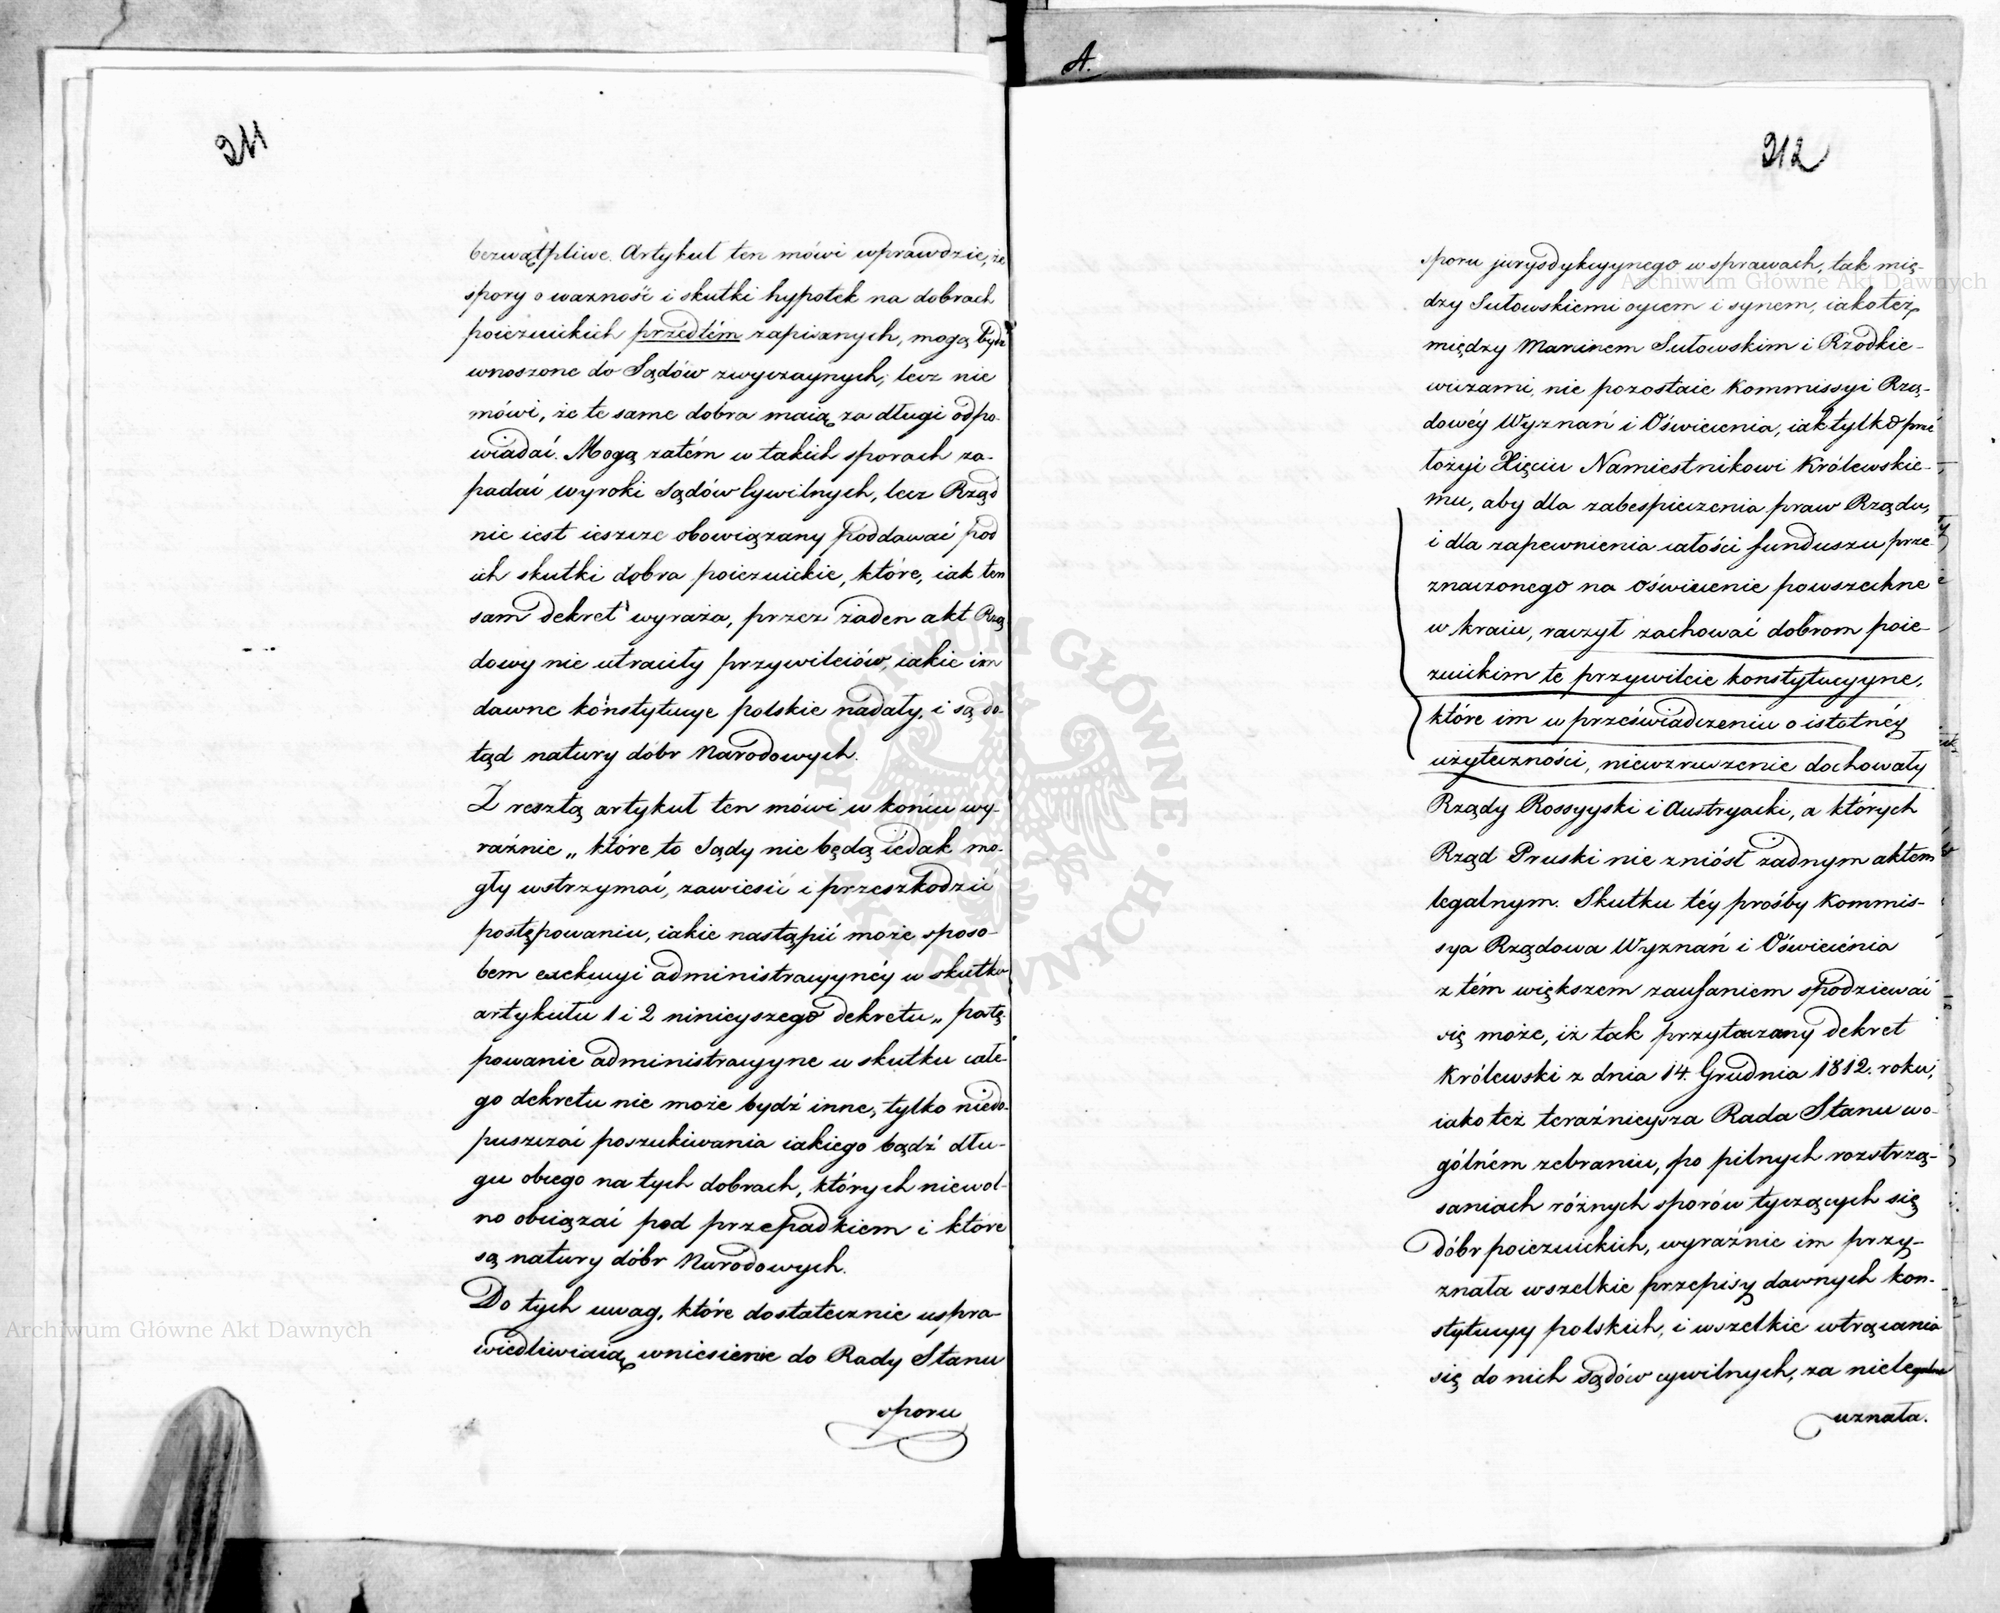 211
bezwątpliwe. Artykuł ten mówi wprawdzie, że
spory o ważność i skutki hypotek na dobrach
poiezuickich przedtém zapisanych, mogą bydź
wnoszone do Sądów zwyczaynych; lecz nie
mówi, że te same dobra maią za długi odpo-
wiadać. Mogą zatém w takich sporach za-
padać wyroki Sądów Cywilnych, lecz Rząd
nie iest ieszcze obowiązany poddawać pod
ich skutki dobra poiezuickie, które, iak ten
sam dekret wyraża, przez żaden akt Rzą
dowy nie utraciły przywileiów, iakie im
dawne konstytucye polskie nadały, i są do-
tąd natury dóbr Narodowych.
Z resztą artykuł ten mówi w końcu wy-
raźnie „ które to Sądy nie będą iedak mo-
gły wstrzymać, zawiesić i przeszkodzić
postępowaniu, iakie nastąpić może sposo-
bem exekucyi administracyynéy w skutku
artykułu 1 i 2 ninieyszego dekretu „ postę
powanie administracyyne w skutku całe-
go dekretu nie może bydź inne, tylko niedo-
puszczać poszukiwania iakiego bądź dłu-
gu obcego na tych dobrach, których niewol-
no obciązać pod przepadkiem i które
są natury dóbr Narodowych.
Do tych uwag, które dostatecznie uspra-
wiedliwiaią wniesienie do Rady Stanu
sporu
A.
212
sporu jurysdykcyynego w sprawach, tak mię-
dzy Sułowskiemi oycem i synem, iako też
między Marinem Sułowskim i Rzodkie-
wiczami, nie pozostaie Kommissyi Rzą-
dowéy Wyznań i Oświecenia, iak tylko prze
łożyć Xięciu Namiestnikowi Królewskie-
mu, aby dla zabespieczenia praw Rządu,
i dla zapewnienia całości funduszu prze
znaczonego na oświecenie powszechne
w kraiu, raczył zachować dobrom poie-
zuickim te przywileie konstytucyyne,
które im w przeświadczeniu o istotnéy
użyteczności, niewzruszenie dochowały
Rządy Rossyyski i Austryacki, a których
Rząd Pruski nie zniósł żadnym aktem
legalnym. Skutku téy prośby Kommis-
sya Rządowa Wyznań i Oświecénia
z tém większem zaufaniem spodziewać
się może, iż tak przytaczany dekret
Królewski z dnia 14. Grudnia 1812. roku,
iako też teraźnieysza Rada Stanu w o-
gólném zebraniu, po pilnych roztrzą-
saniach różnych sporów tyczących się
dóbr poiezuickich, wyraźnie im przy-
znała wszelkie przepisy dawnych kon-
stytucyy polskich, i wszelkie wtrącania
się do nich sądów cywilnych, za nielegalne
uznała.
Archiwum Główne Akt Dawnych
Archiwum Główne Akt Dawnych